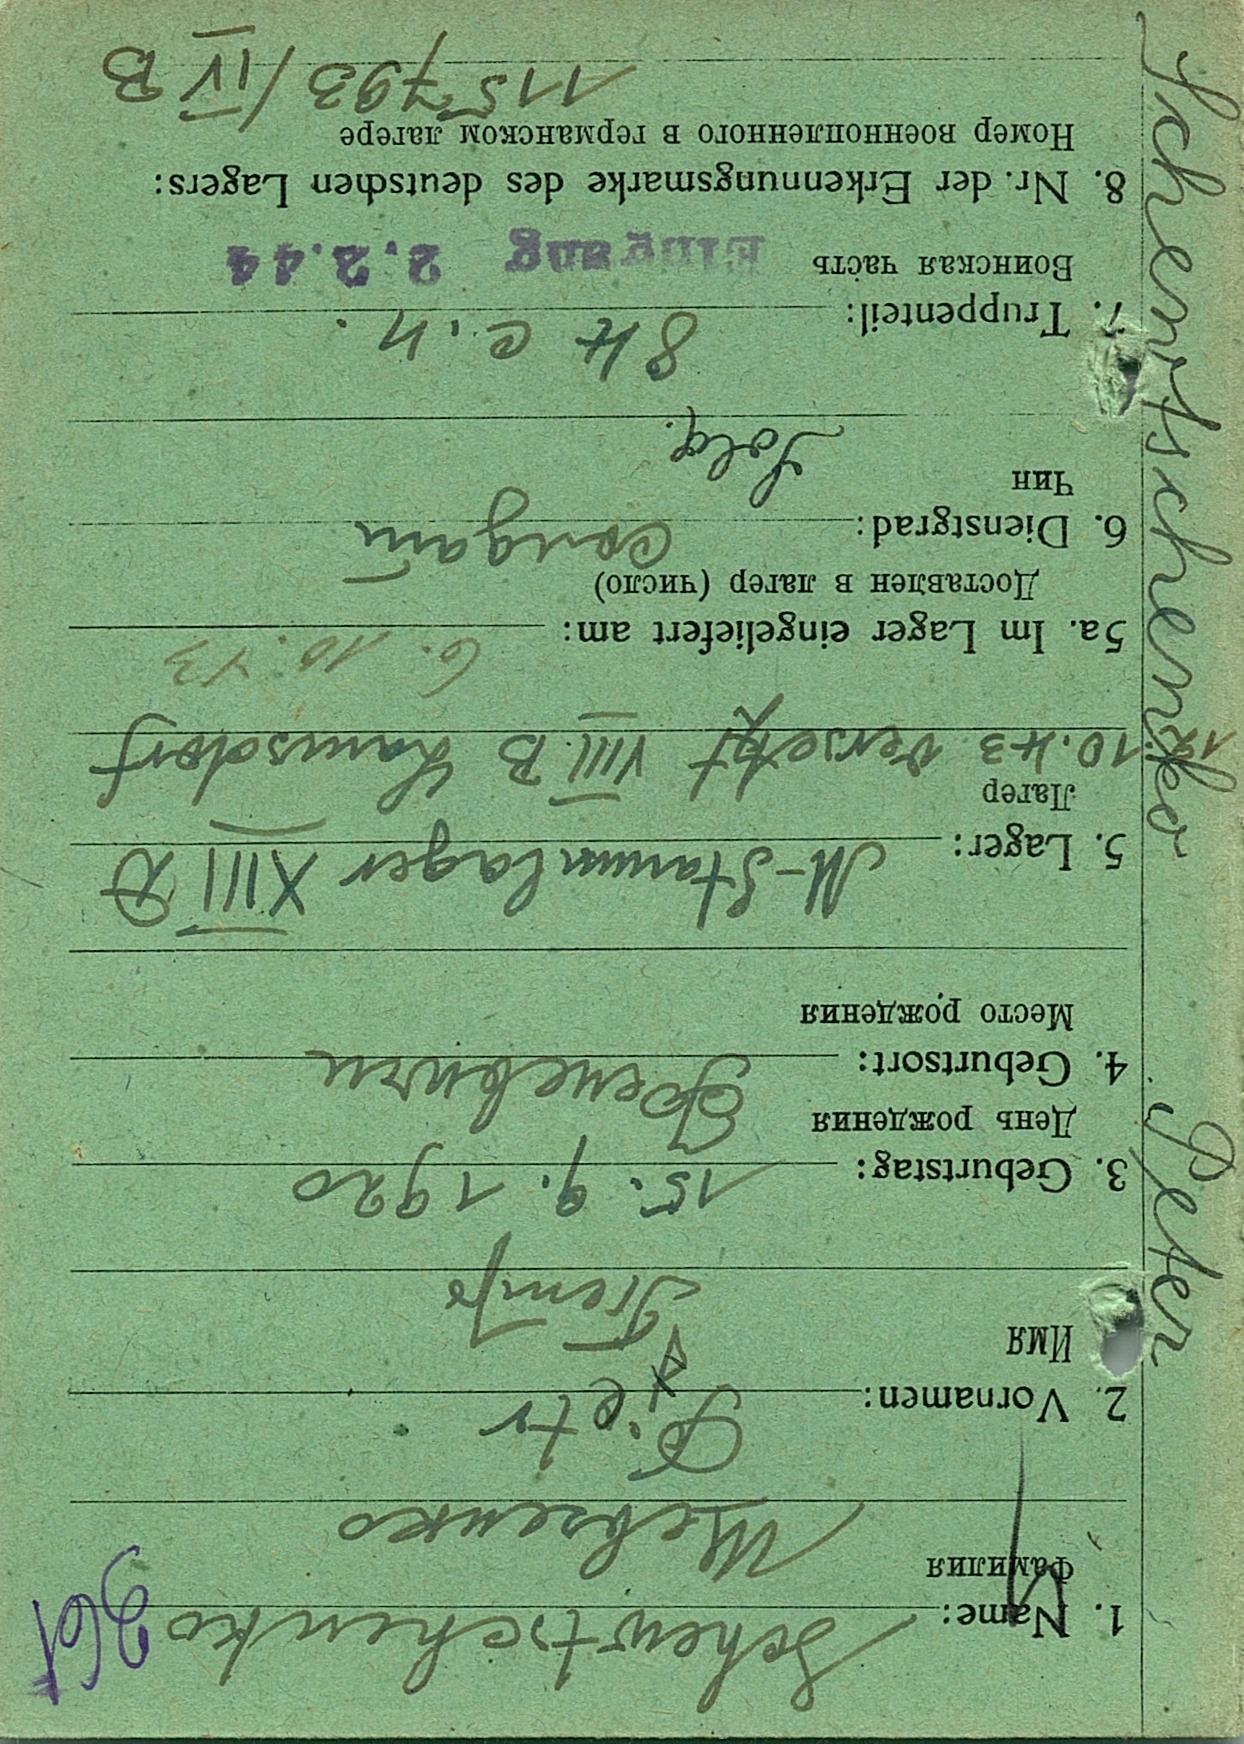 Schewtschenko Peter
261
1. Name: Schewtschenko
Фамилия Шевзенко
2. Vornamen: Pietr
Имя
3. Geburtstag: 15. 9. 1920
День рождения
4. Geburtsort:
Место рождения
5. Lager: M-Stammlager XIII D
Лагер
12.10.43 versetzt VIII. B Lamsdorf
5a. Im Lager eingeliefert am: 6. 10. 43
Доставлен в лагер (число)
6. Dienstgrad: Солдат
Чин Sold.
7. Truppenteil: 84 с.п.
Воинская часть Eingang 2.2.44
8. Nr. der Erkennungsmarke des deutschen Lagers:
Номер военнопленного в германском лагере
115793/IV B